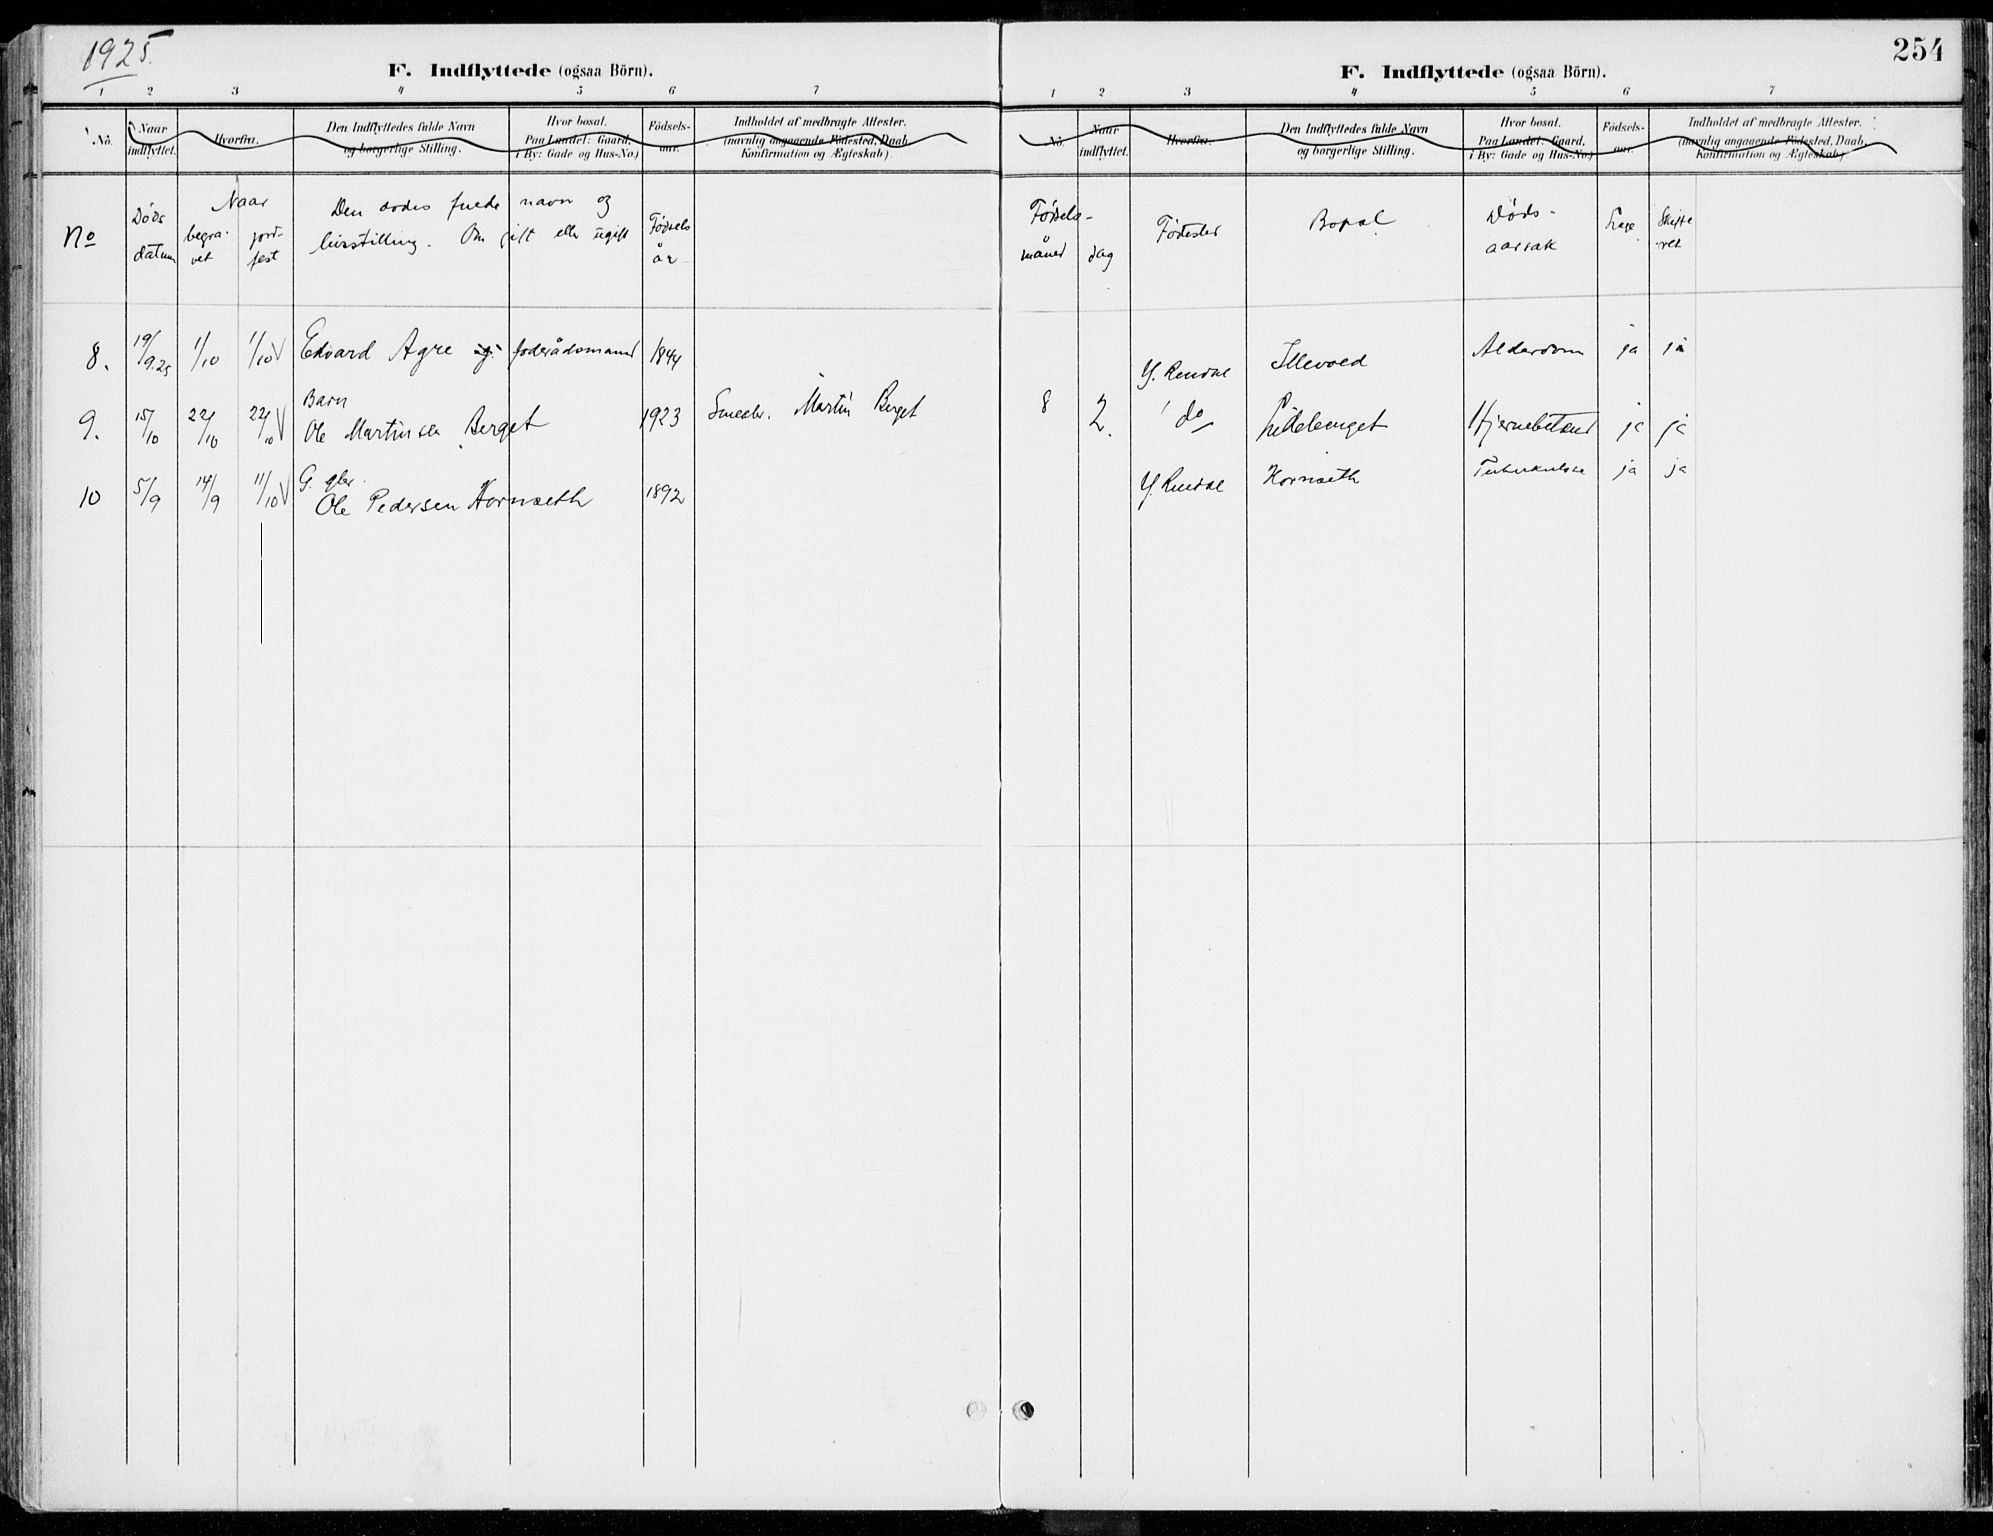 1925.
F. Indflyttede (ogsaa Börn).
1 2 3 4 5 6 7
No.
Naar indflyttet.
Hvorfra.
Den Indflyttedes fulde Navn
og borgerlige Stilling.
Hvor bosat.
Paa Landet: Gaard,
i By: Gade og Hus-No.)
Födsels-
aar.
Indholdet af medbragte Attester.
(navnlig angaaende Födested, Daab,
Konfirmation og Ægteskab).
No
Døds
datum
Naar
begra-
vet
jord-
fest
Den dødes fulde navn og
livsstilling. Om gift eller ugift
Fødsels
år
8. 19/9.25 1/10 1/10 V Edvard Agre foderådsmand 1844
Barn
9. 15/10 22/10 22/10 V Ole Martinsen Berget 1923 Martin Berget
G.
10 5/9 14/9 11/10 V Ole Pedersen Hornseth 1892
254
F. Indflyttede (ogsaa Börn).
1 2 3 4 5 6 7
No.
Naar
indflyttet.
Hvorfra.
Den Indflyttedes fulde Navn
og borgerlige Stilling.
Hvor bosat.
Paa Landet: Gaard,
i By: Gade og Hus-No.)
Födsels-
aar.
Indholdet af medbragte Attester.
(navnlig angaaende Födested, Daab,
Konfirmation og Ægteskab)
Fødsels-
måned
dag
Fødested
Bopæl
Døds-
aarsak
Læge
Skifte
ret
Y. Rendal Illevold Alderdom ja ja
8 2. do ja ja
Y. Rendal Hornseth Tuberkulose ja ja